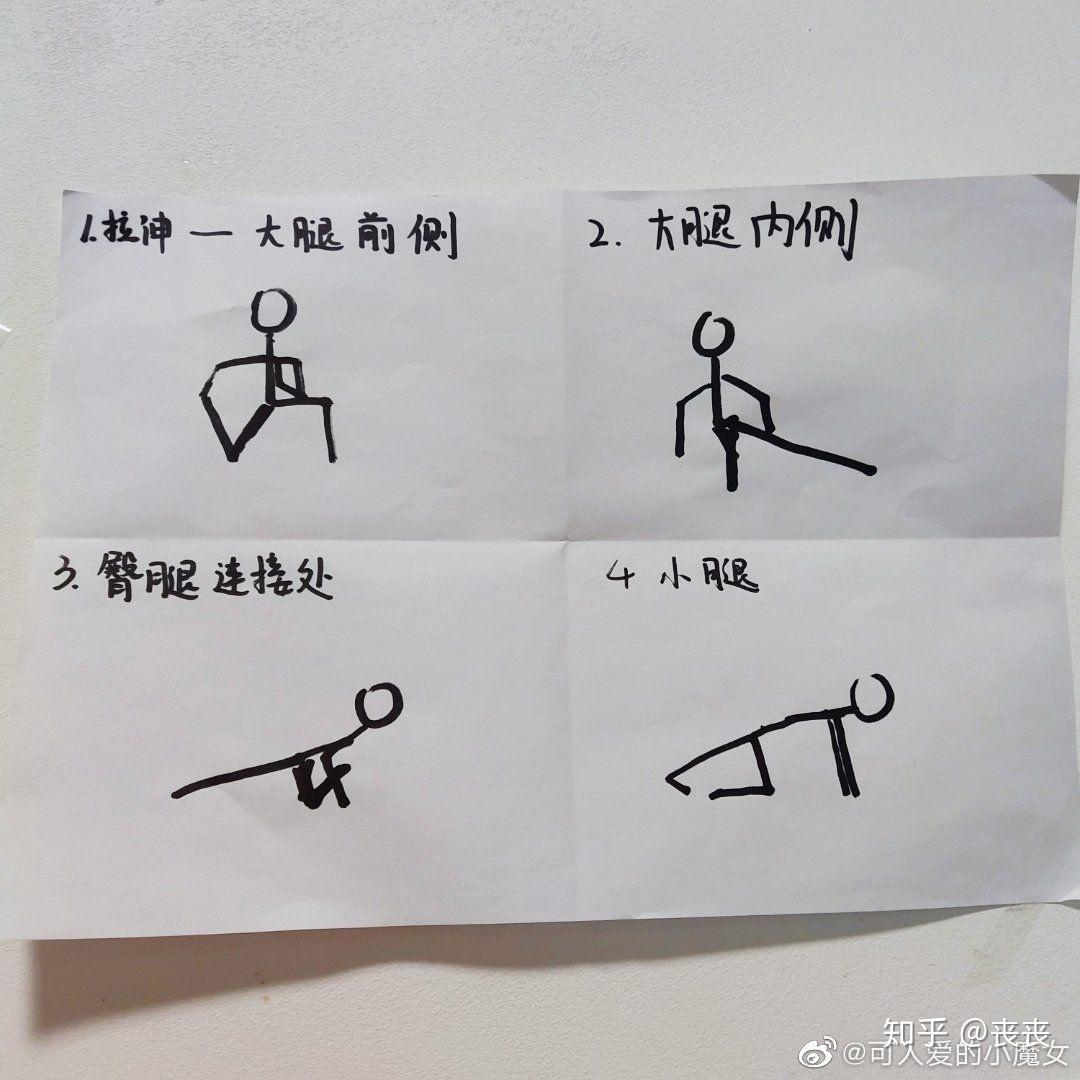 1.拉伸—大腿前侧
2.大腿内侧
3.臀腿连接处
4小腿
知乎@丧丧
@可人爱的小魔女